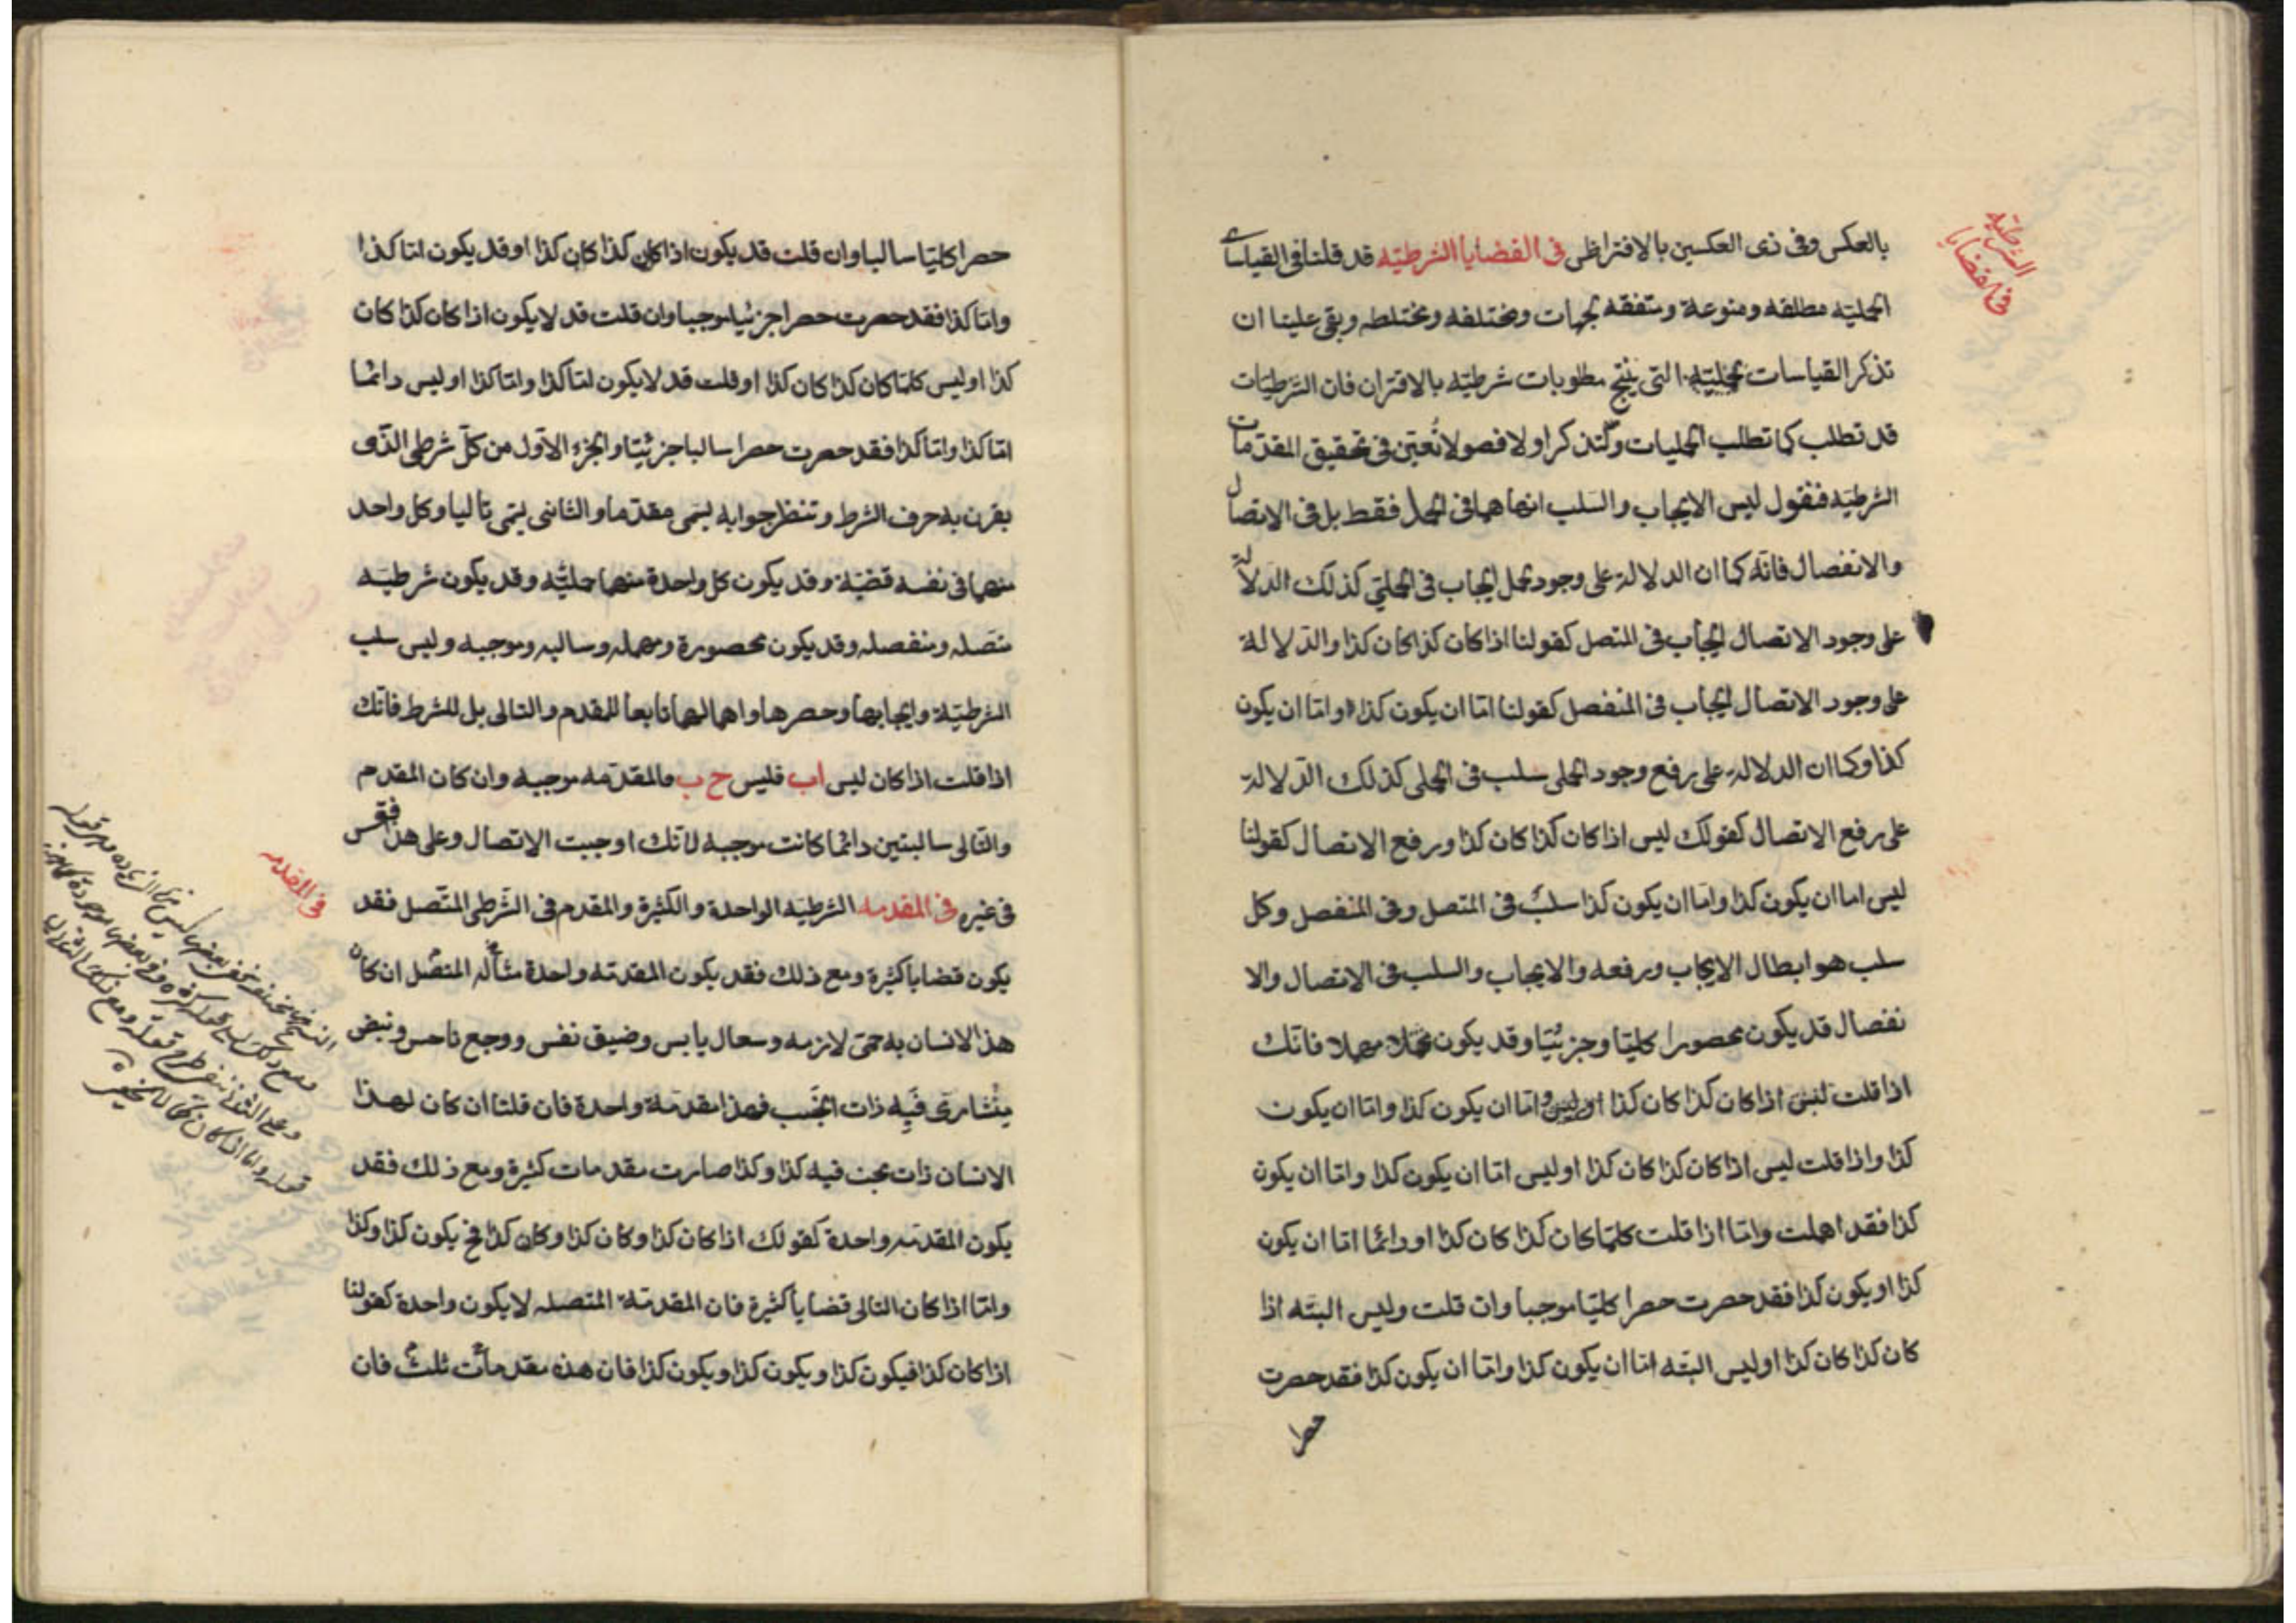 بالعكس وفى ذى العكسين بالافتراض فى القضايا الشرطيّه قد قلنا فى القياسات
الحمليّه مطلقه ومنوعة ومتفقه لجهات ومختلفه ومختلطه وبقى علينا ان
نذكر القياسات التى ينتج مطلوبات شرطيّه بالاقتران فان الشرطيّات
قد تطلب كما تطلب الحمليات ولنذكر اولا فصولا نُعين فى تحقيق المقدمات
الشرطيّه فنقول ليس الايجاب والسلب انما هما فى الحمل فقط بل فى الاتصال
والانفصال فانّه كما ان الدلالة على وجود حمل ايجاب فى الحملى كذلك الدلالة
على وجود الاتصال ايجاب فى المتصل كقولنا اذا كان كذا كان كذا والدّلالة
على وجود الاتصال ايجاب فى المنفصل كقولنا امّا ان يكون كذا وامّا ان يكون
كذا وكما ان الدلالة على رفع وجود الحملى سلب فى الحملى كذلك الدّلالة
على رفع الاتصال كقولك ليس اذا كان كذا كان كذا ورفع الاتصال كقولنا
ليس اما ان يكون كذا وامّا ان يكون كذا سلبٌ فى المتصل وفى المنفصل وكل
سلب هو ابطال الايجاب ورفعه والايجاب والسلب فى الاتصال والا
نفصال قد يكون محصورا كليّا وجزئيّا وقد يكون مهملا فانّك
اذا قلت اذا كان كذا كان كذا امّا ان يكون كذا وامّا ان يكون
كذا واذا قلت ليس اذا كان كذا كان كذا او ليس امّا ان يكون كذا وامّا ان يكون
كذا فقد اهملت وامّا اذا قلت كلّما كان كذا كان كذا او دائما امّا ان يكون
كذا او يكون كذا فقد حصرت حصرا كليّا موجبا وان قلت وليس البتّه اذا
كان كذا كان كذا او ليس البتّه امّا ان يكون كذا وامّا ان يكون كذا فقد حصرت
حصرا
فى القضايا
الشرطيّه
حصرا كليّا سالبا وان قلت قد يكون اذا كان كذا كان كذا او قد يكون امّا كذا
وامّا كذا فقد حصرت حصرا جزئيا موجبا وان قلت قد لا يكون اذا كان كذا كان
كذا او ليس كلمّا كان كذا كان كذا او قلت قد لا يكون امّا كذا وامّا كذا او ليس دائما
امّا كذا وامّا كذا فقد حصرت حصرا سالبا جزئيّا والجزء الاوّل من كلّ شرطى الذّى
يقرن به حرف الشرط وتنظر جوابه يسمى مقدّما والثانى يسمى تاليا وكل واحد
منهما فى نفسه قضيّة وقد يكون كل واحدة منهما حمليّه وقد يكون شرطيّه
متصله ومنفصله وقد يكون محصورة ومهمله وسالبه وموجبه وليس سلب
الشرطيّة وايجابها وحصرها واهمالها تابعا للمقدم والتالى بل للشرط فانّك
اذا قلت اذا كان ليس اب فليس ح ب فالمقدّمه موجبه وان كان المقدم
والتّالى سالبتين دائما كانت موجبه لانّك اوجبت الاتصال وعلى هذا فقس
فى غيره فى المقدمه الشرطيّه الواحدة والكثيرة والمقدم فى الشّرطى المتّصل فقد
يكون قضايا كثيرة ومع ذلك فقد يكون المقدمه واحدة مثاله المتّصل ان كان
هذا الانسان به حمّى لازمه وسعال يابس وضيق نفس ووجع ناخس ونبض
منشارى فبه ذات الجنب فهذا مقدمة واحدة فان قلنا ان كان لهذا
الانسان ذات جنب فبه كذا وكذا صارت مقدمات كثيرة ومع ذلك فقد
يكون المقدمه واحدة كقولك اذا كان كذا وكان كذا وكان كذا فح يكون كذا وكذا
وامّا اذا كان التالى قضايا كثيرة فان المقدمة المتصله لا يكون واحدة كقولنا
اذا كان كذا فيكون كذا ويكون كذا ويكون كذا فان هذه مقدمات ثلث فان
فى المقدمه